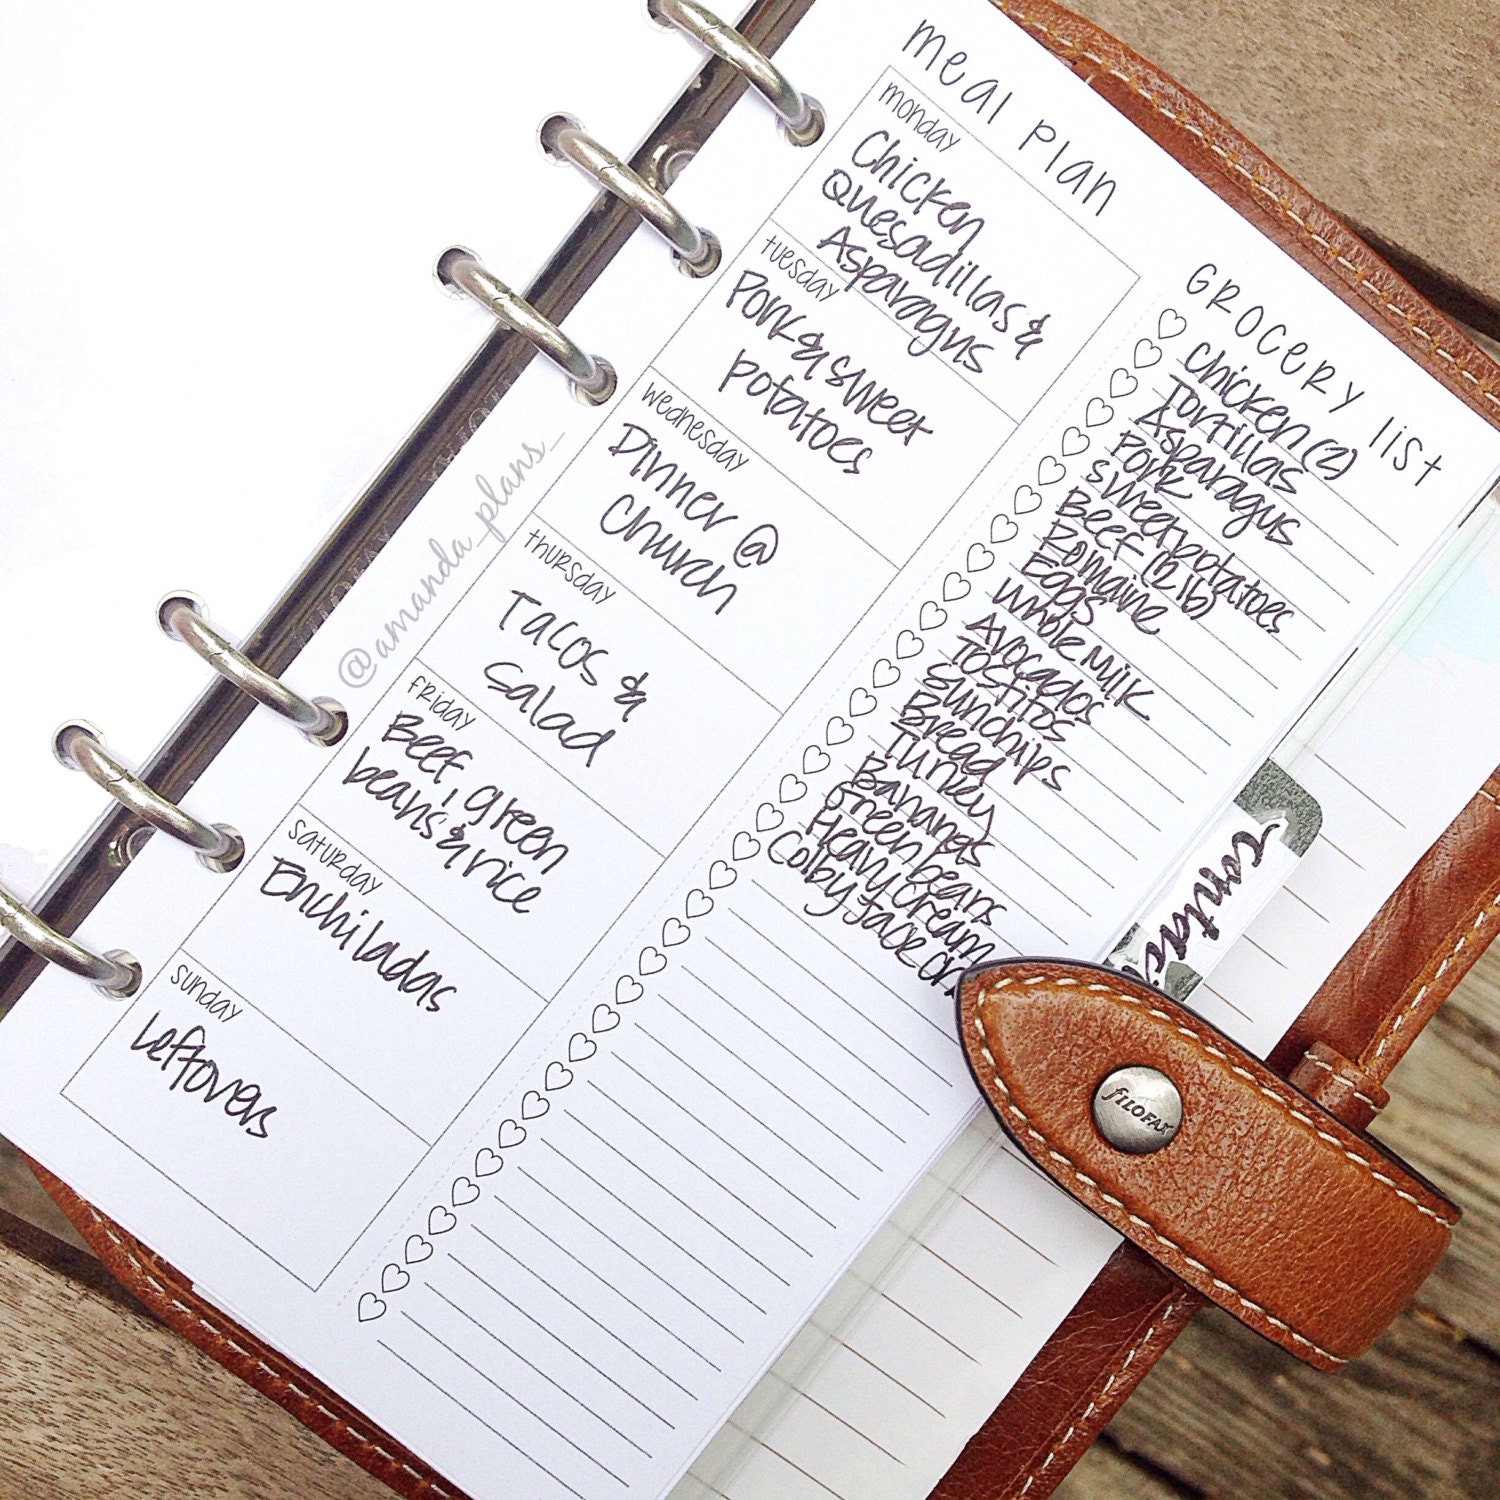 meal plan
monday
Chicken
Quesadillas &
Asparagus
tuesday
Pork & sweet
potatoes
wednesday
Dinner @
Church
thursday
Tacos &
Salad
friday
Beef, green
beans & rice
saturday
Enchiladas
sunday
Leftovers
GROCERY LIST
Chicken (2)
Tortillas
Asparagus
Pork
sweet potatoes
Beef (2 lb)
Romaine
Eggs
Whole Milk
Avocados
Tostitos
Sunchips
Bread
Turkey
Bananas
Green beans
Heavy Cream
Colby Jack
@amanda_plans_
filofax